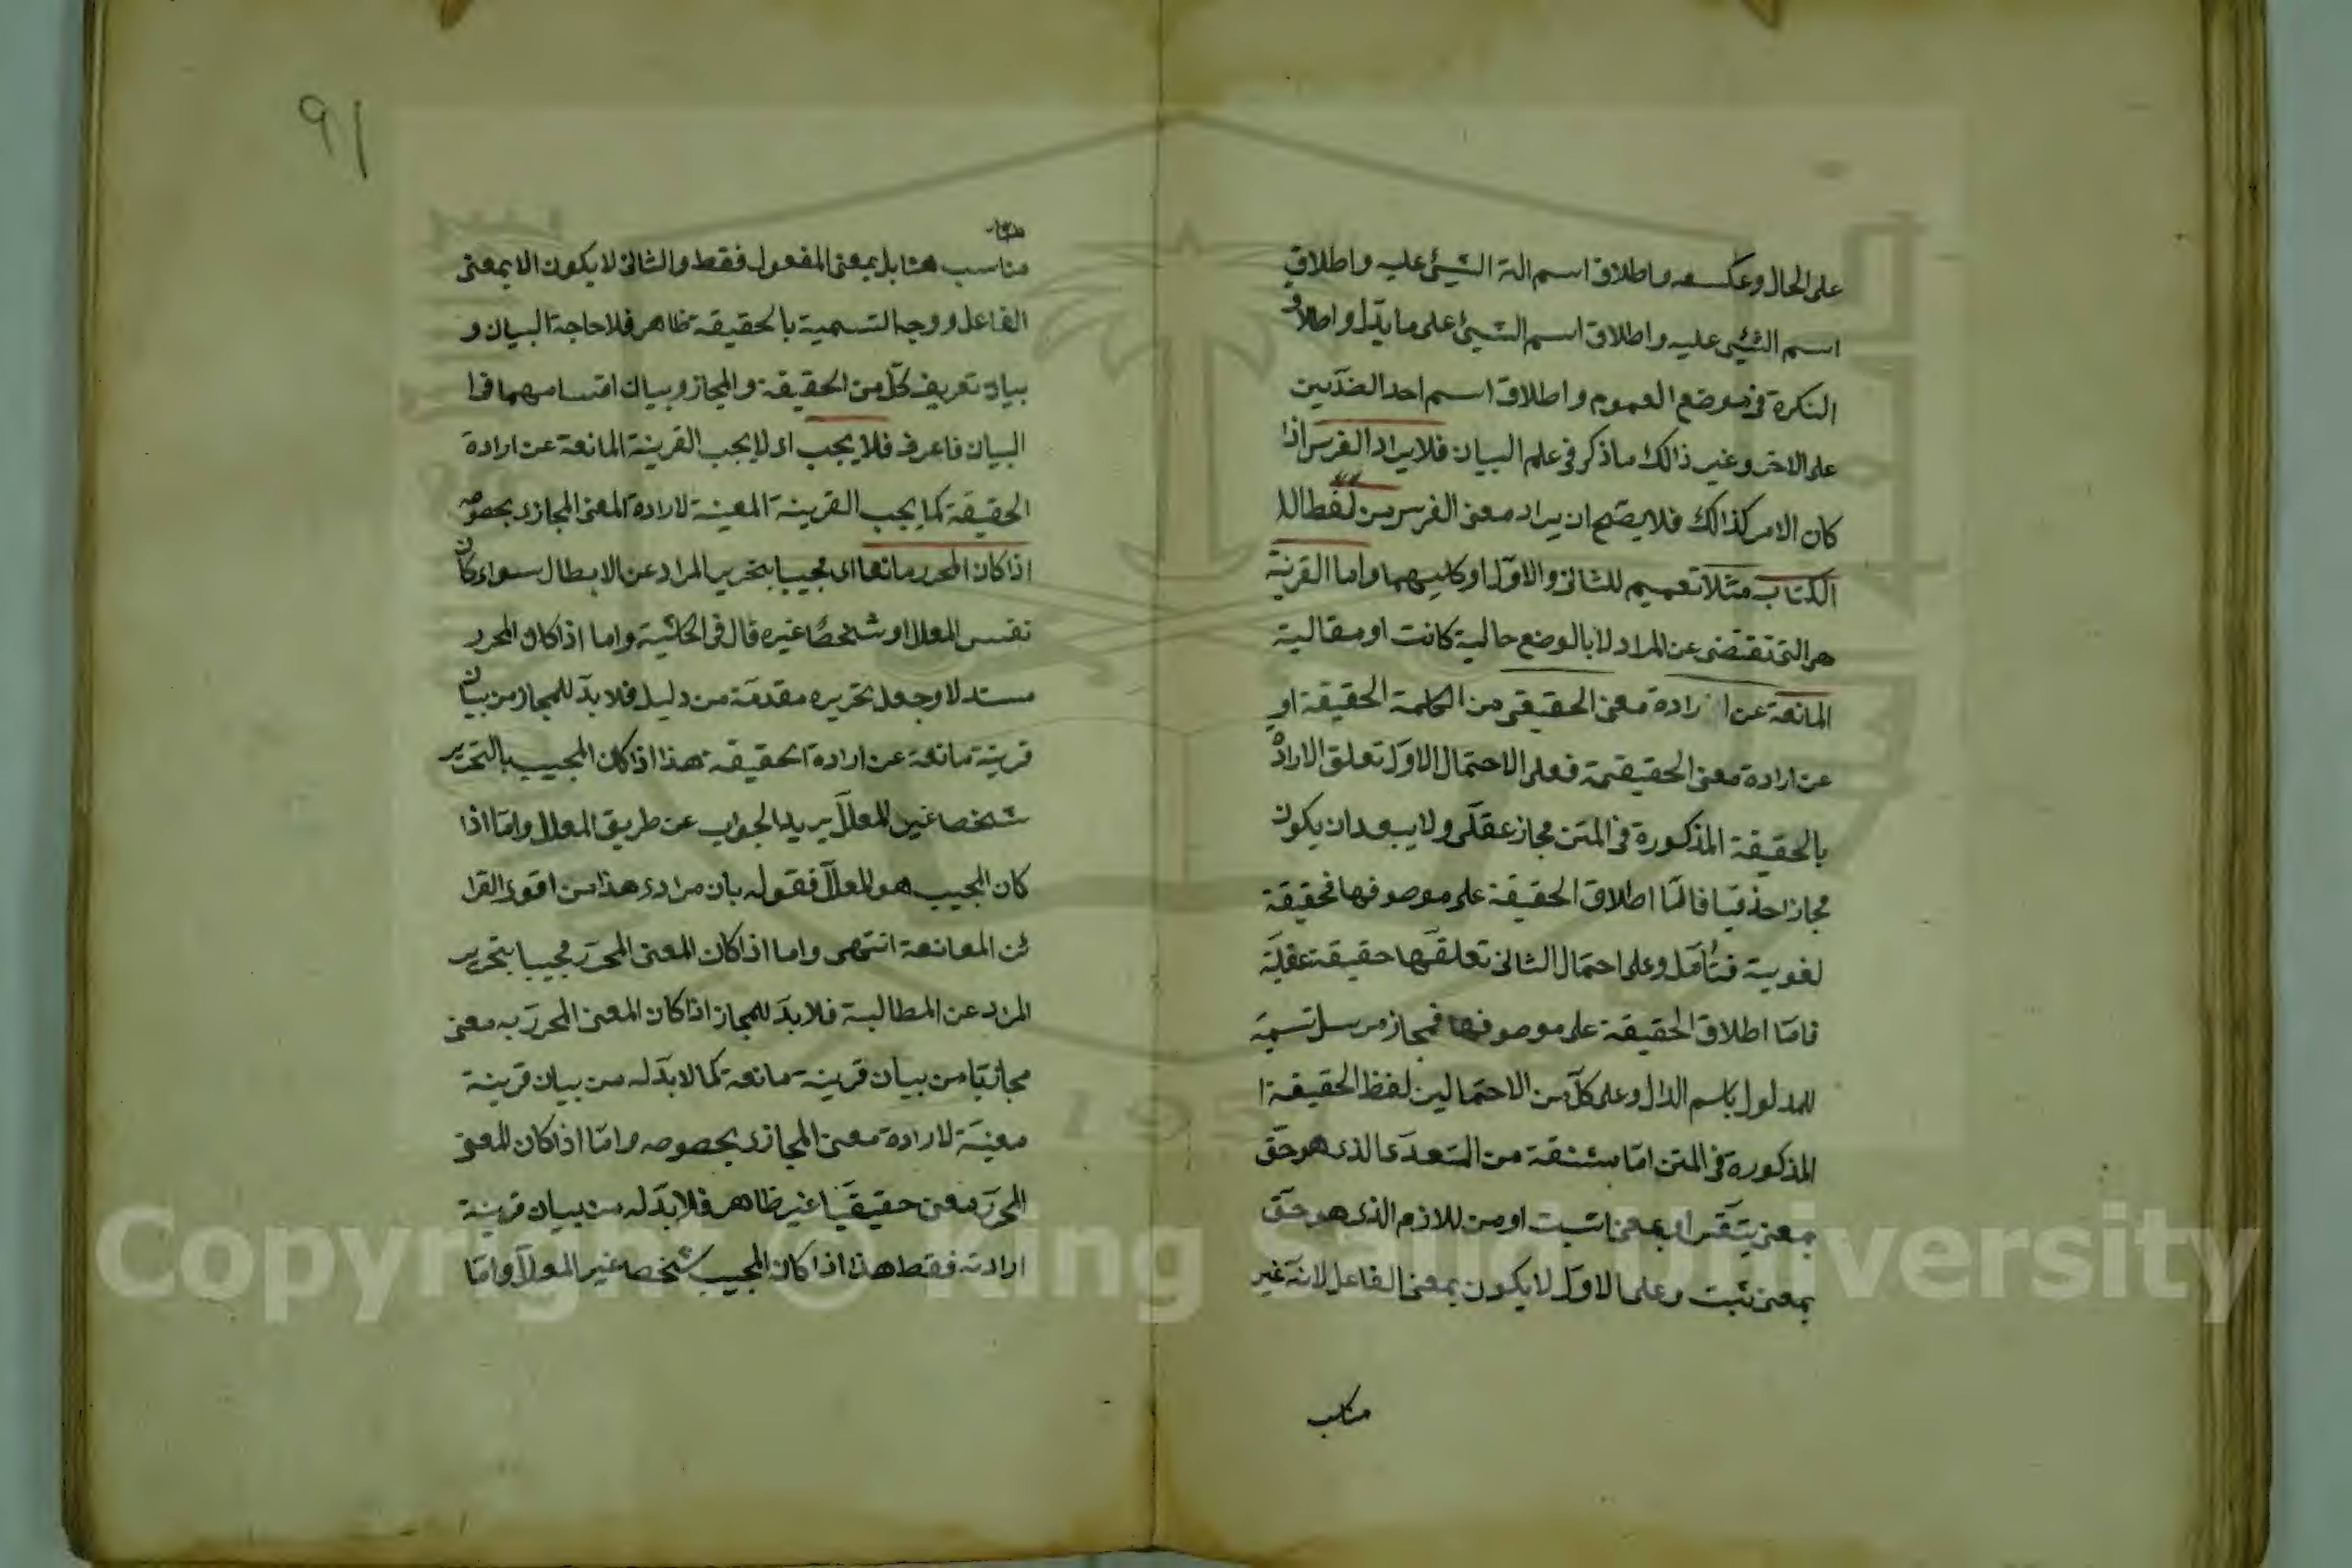 على الحال وعكسه واطلاق اسم الة الشيئ عليه واطلاق
اسم الشيئ عليه واطلاق اسم الشيئ على ما يدل واطلاق
النكرة فى موضع العموم واطلاق اسم احد الضدين
على الاخر وغير ذالك ما ذكر فى علم البيان فلا يراد الفرس اذا
كان الامر كذالك فلا يصح ان يراد معنى الفرس من لفظ الا
الكتاب مثلا تعميم للثانى والاول او كليهما واما القرينة
هى التى تقتضى عن المراد لا بالوضع حالية كانت او مقالية
المانعة عن ارادة معنى الحقيقى من الكلمة الحقيقة او
عن ارادة معنى الحقيقية فعلى الاحتمال الاول تعلق الارادة
بالحقيقة المذكورة فى المتن مجاز عقلى ولا يبعد ان يكون
مجازا حذفيا فاما اطلاق الحقيقة على موصوفها فحقيقة
لغوية فتأمل وعلى احتمال الثانى تعلقها حقيقة عقلية
فاما اطلاق الحقيقة على موصوفها فمجاز مرسل تسمية
للمدلول باسم الدال وعلى كل من الاحتمالين لفظ الحقيقة ا
المذكورة فى المتن اما مشتقة من المتعدى الذى هو حق
بمعنى او بمعنى اثبت او من اللازم الذى هو حق
بمعنى ثبت وعلى الاول لا يكون بمعنى الفاعل لانه غير
مناسب
مناسب هنا بل بمعنى المفعول فقط والثانى لا يكون الا بمعنى
الفاعل ووجه التسمية بالحقيقة ظاهر فلا حاجة البيان و
بيان تعريف كل من الحقيقة والمجاز وبيان اقسامهما فى ا
البيان فاعرف فلا يجب اى لا يجب القرينة المانعة عن ارادة
الحقيقة كما يجب القرينة المعينة لارادة المعنى المجازى بخصوصه
اذا كان المحرر مانعا اى مجيبا بتحرير المراد عن الابطال سواء كان
نفس المعلل او شخصا غيره قال فى الحاشية واما اذا كان المحرر
مستدلا وجعل تحريره مقدمة من دليل فلا بد للمجاز من بيان
قرينة مانعة عن ارادة الحقيقة هذا اذا كان المجيب بالتحرير
شخصا غير المعلل يريد الجواب عن طريق المعلل واما اذا
كان المجيب هو المعلل فقوله بان مرادى هذا من اقوى القرا
ئن المعانعة انتهى واما اذا كان المعنى المحرر مجيبا بتحرير
المراد عن المطالبة فلا بد للمجاز اذا كان المعنى المحرر به معنى
مجازيا من بيان قرينة مانعة كما لا بد له من بيان قرينة
معينة لارادة معنى المجازى بخصوصه واما اذا كان المعنى
المحرر معنى حقيقيا غير ظاهر فلا بد له من بيان قرينة
ارادته فقط هذا اذا كان المجيب شخصا غير المعلل واما
٩١
Copyright © King Saud University
195